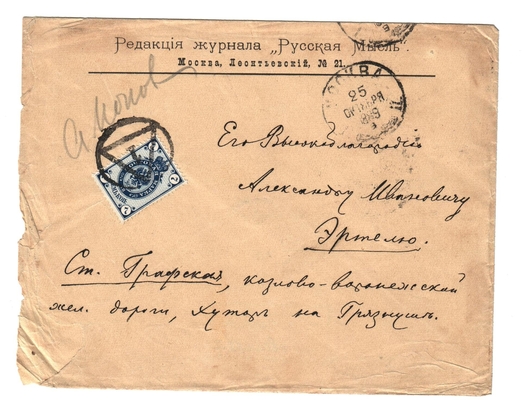 Редакція журнала „Русская Мысль“.
Москва, Леонтьевскій, № 21.
МОСКВА
25
ОКТЯБРЯ
7
7
Его Высокоблагородію
Александру Ивановичу
Эртелю.
Ст. Графская, козлово-воронежской
жел. дороги, хуторъ на Грязнушѣ.